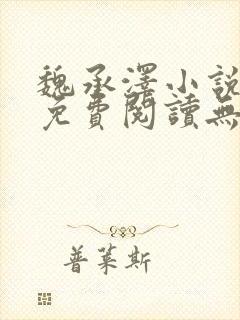 魏承澤小說
免費閱讀無
普萊斯